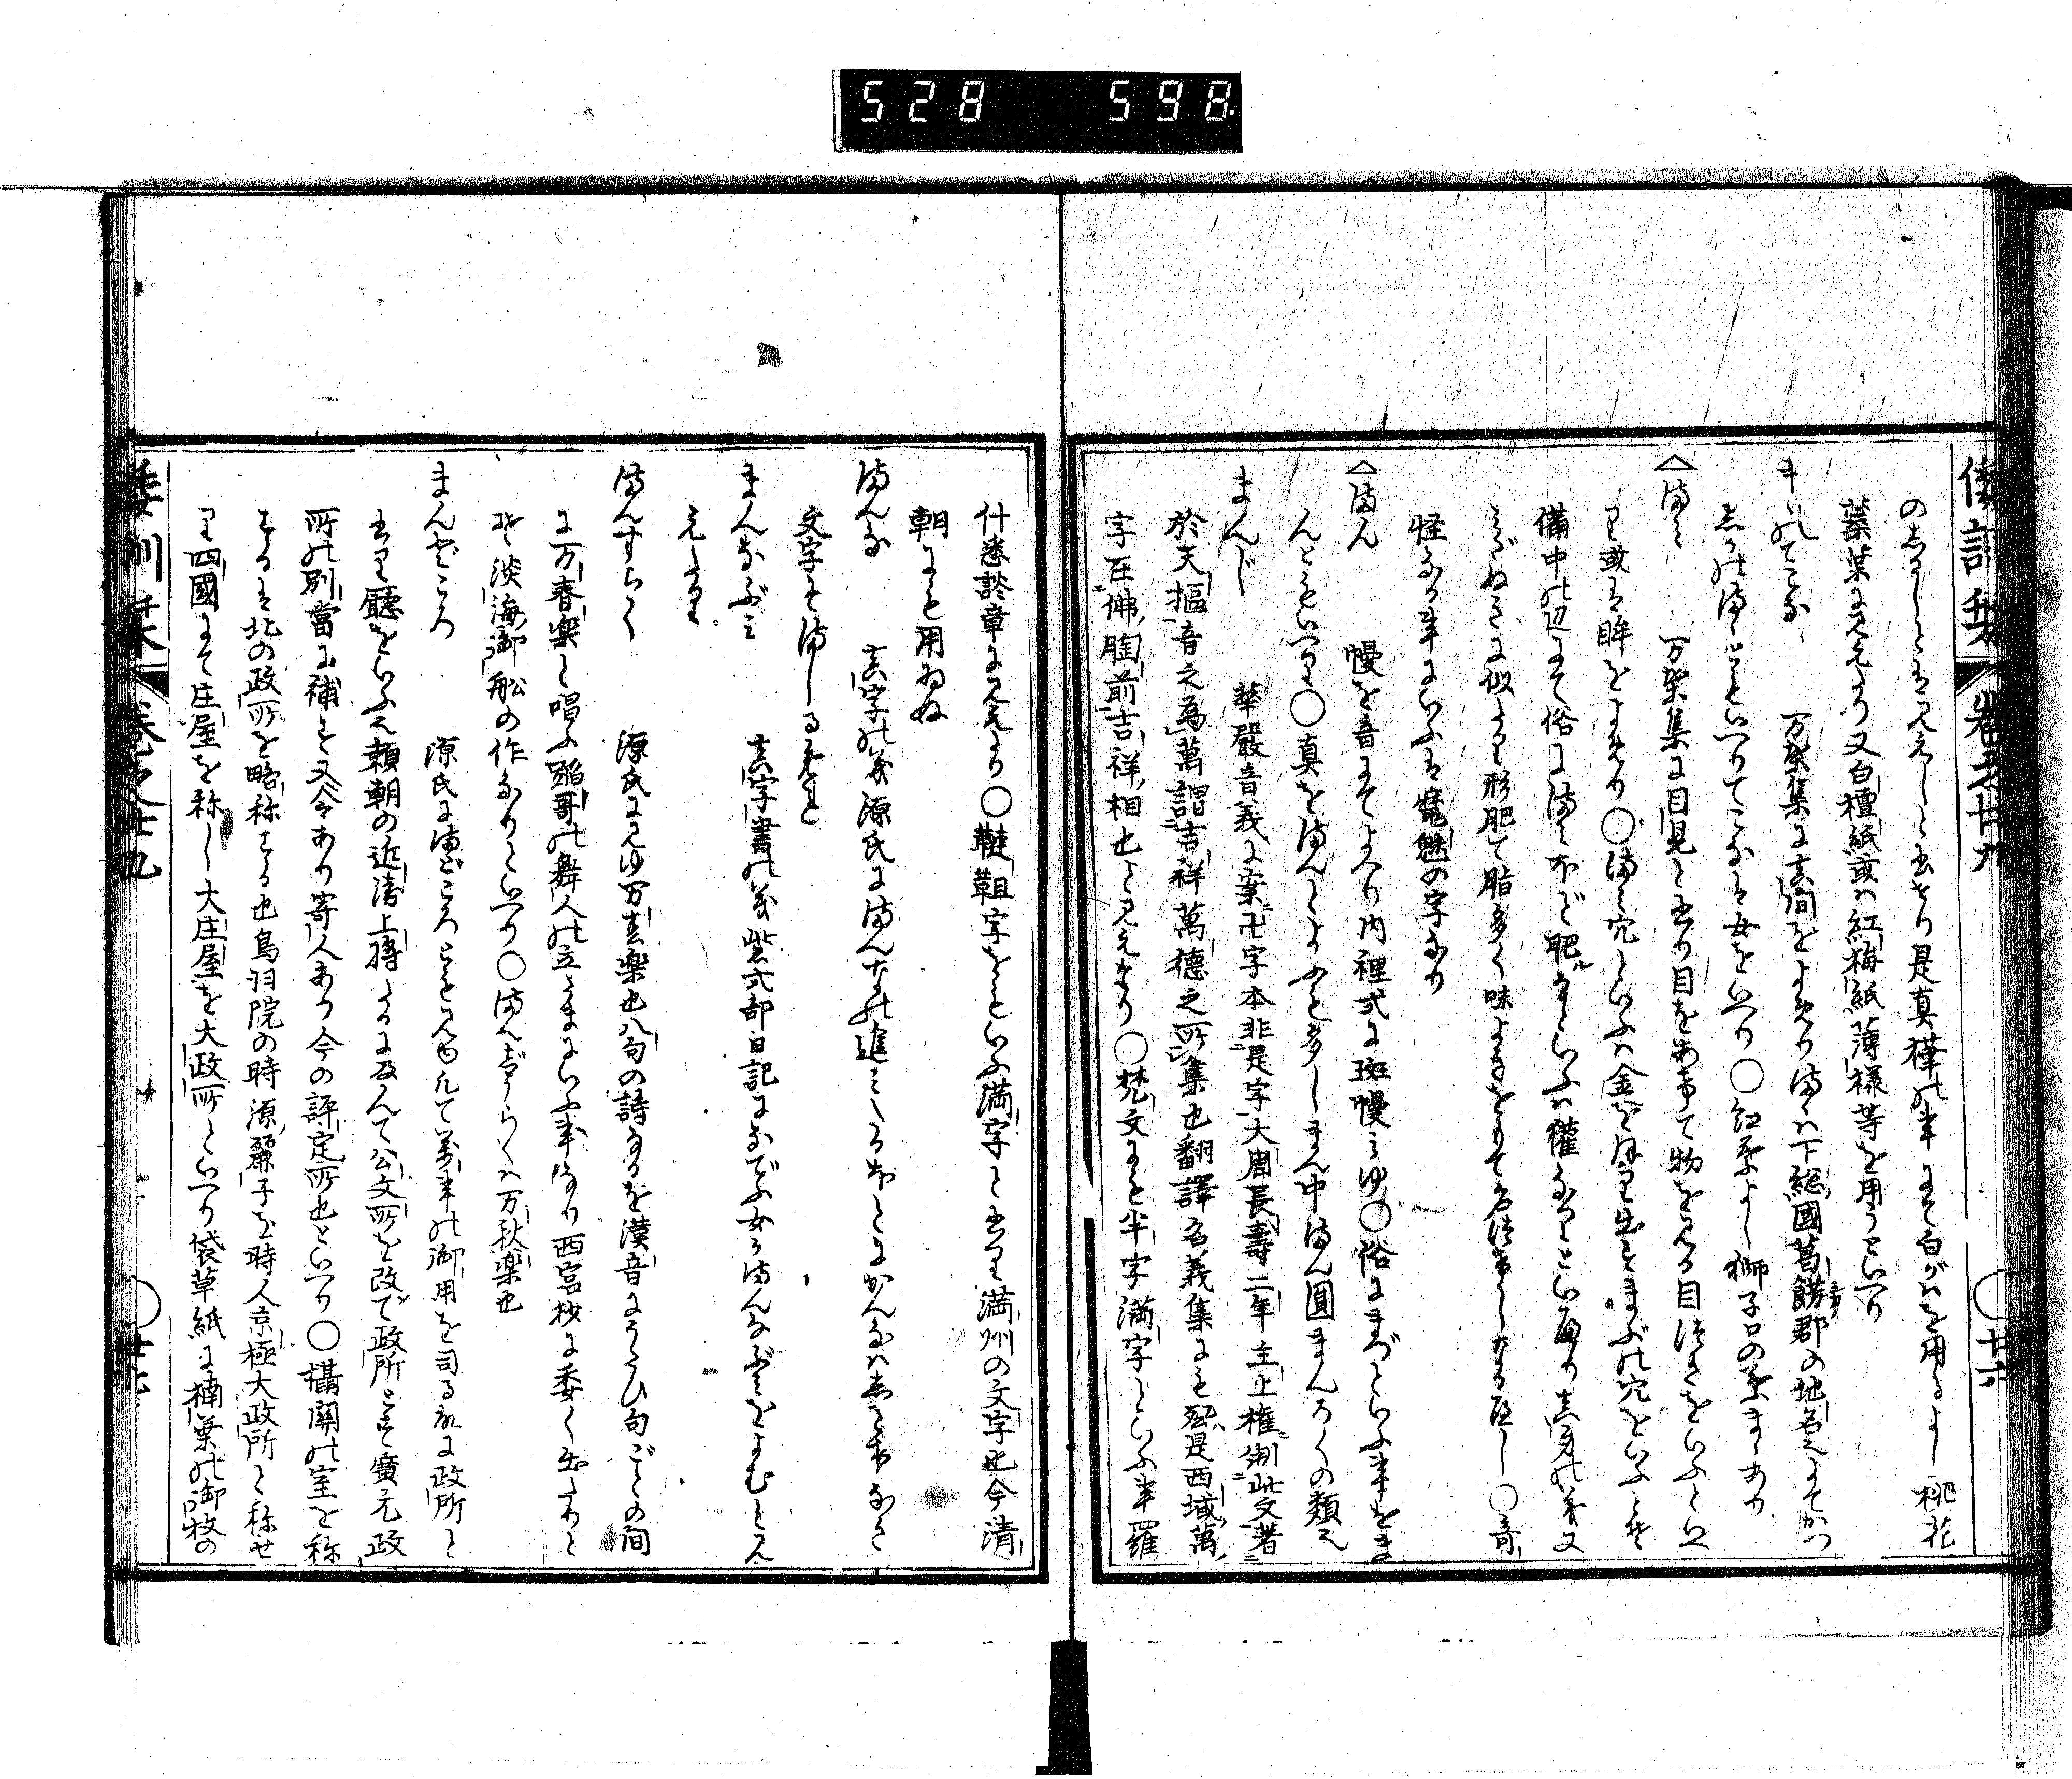 528 598
倭訓栞 巻之廿九 ○廿六
のまゆしとも見えしと出せり是真樺の事にて白がはを用るよし桃花
蘂葉に見えたり又白檀紙或ハ紅梅紙薄様等を用うといへり
まゝのてこな 万葉集に真間をよめりまゝハ下総國葛餝郡の地名也よてかつ
しかのまゝともいへりてこなは女をいへり
まみ 万葉集に目見と書り目をあきて物をみる目つきをいふといへ
り或は眸をよめり○まみ穴といふハ金をほり出すまぶの穴をいふとぞ
備中の辺にて俗にまみほど肥るといふハ獾なりといへり真身の義又
みだぬきに似たり形肥て脂多く味よきをもて名けたるなるべし○奇
怪なる事にいふは魔魅の字なり
まん 幔を音にてよべり内裡式に斑幔みゆ○俗にまがよいといふ事をま
んともいへり○真をまんとよふも多しまん中まん圓まんろくの類也
まんじ 華嚴音義に案卍字本非是字大周長壽二年主上權制此文著
於天樞音之爲萬謂吉祥萬德之所集也翻譯名義集にも卍是西域萬
字在佛胸前吉祥相也と見えたり○梵文にも半字満字といふ事羅
什悉談章に見えたり○韃靼字をもいふ満字と書り満州の文字也今清
朝にも用ゐぬ
まんな 真字の義源氏にまんなの進みたるほとにかんなハしとけなき
文字こそましるめれと
まんなぶみ 真字書の義紫式部日記になでふ女かまんなぶミをよむと見
えたり
まんすらく 源氏にみゆ万春楽也八句の詩なるを漢音にうたひ句ごとの間
に万春楽と唱ふ踏哥の舞人の立さまにいふ事なり西宮抄に委く出たりと
ぞ淡海御船の作なりといへり○まんじうらくハ万秋楽也
まんどころ 源氏にまどころともみゆ凡て萬事の御用を司る故に政所と
書り廳をいふ也頼朝の近済上將たるに及んて公文所を改て政所とす廣元政
所の別當に補す又令あり寄人あり今の評定所也といへり○攝関の室を称
するは北の政所を略称する也鳥羽院の時源麗子を時人京極大政所と称せ
り四國にて庄屋を称し大庄屋を大政所といへり袋草紙に楠葉の御牧の
倭訓栞 巻之廿九 ○廿七